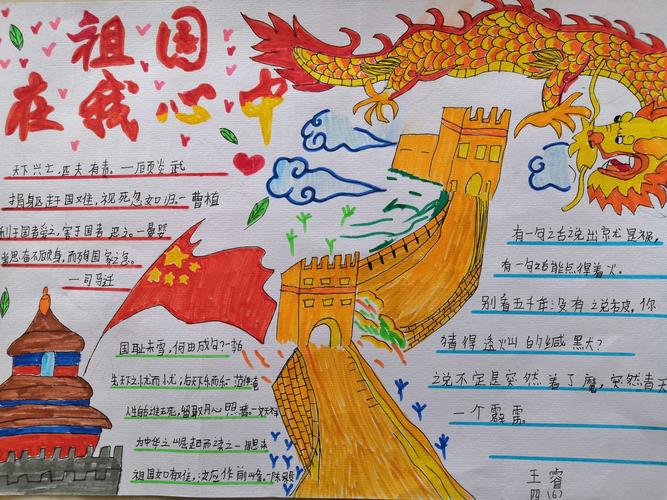 祖国
在我心中
天下兴亡,匹夫有责。一顾炎武
捐躯赴国难,视死忽如归一曹植
利于国者爱之,害于国者 恶之一晏婴
常思奋不顾身,而殉国家之急。
一司马迁
国耻未雪,何由成名?一
先天下之忧而忧,后天下乐而乐 范仲淹
人生自古谁无死,留取丹心照一文天祥
为中华之崛起而读之一周恩来
祖国如有难,汝应作前峰一陈毅
有一句话说出就是祸,
有一句话能点得着火。
别看五千年没有说破,你
猜得透火山的缄默?
说不定是突然着了魔,突然青天
一个霹雳。
王睿
四(6)